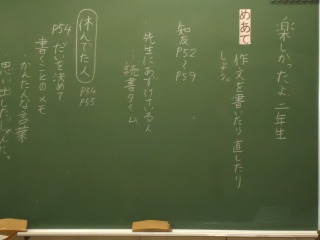 楽しかったよ 二年生
めあて 作文を書いたり 直したり
しよう。
知友 P52~P59
先生にあずけている人
読書タイム
休んでた人 P54 P55
P54 だいを決めて
書くことのメモ
かんたんな言葉
思い出したじゅんに